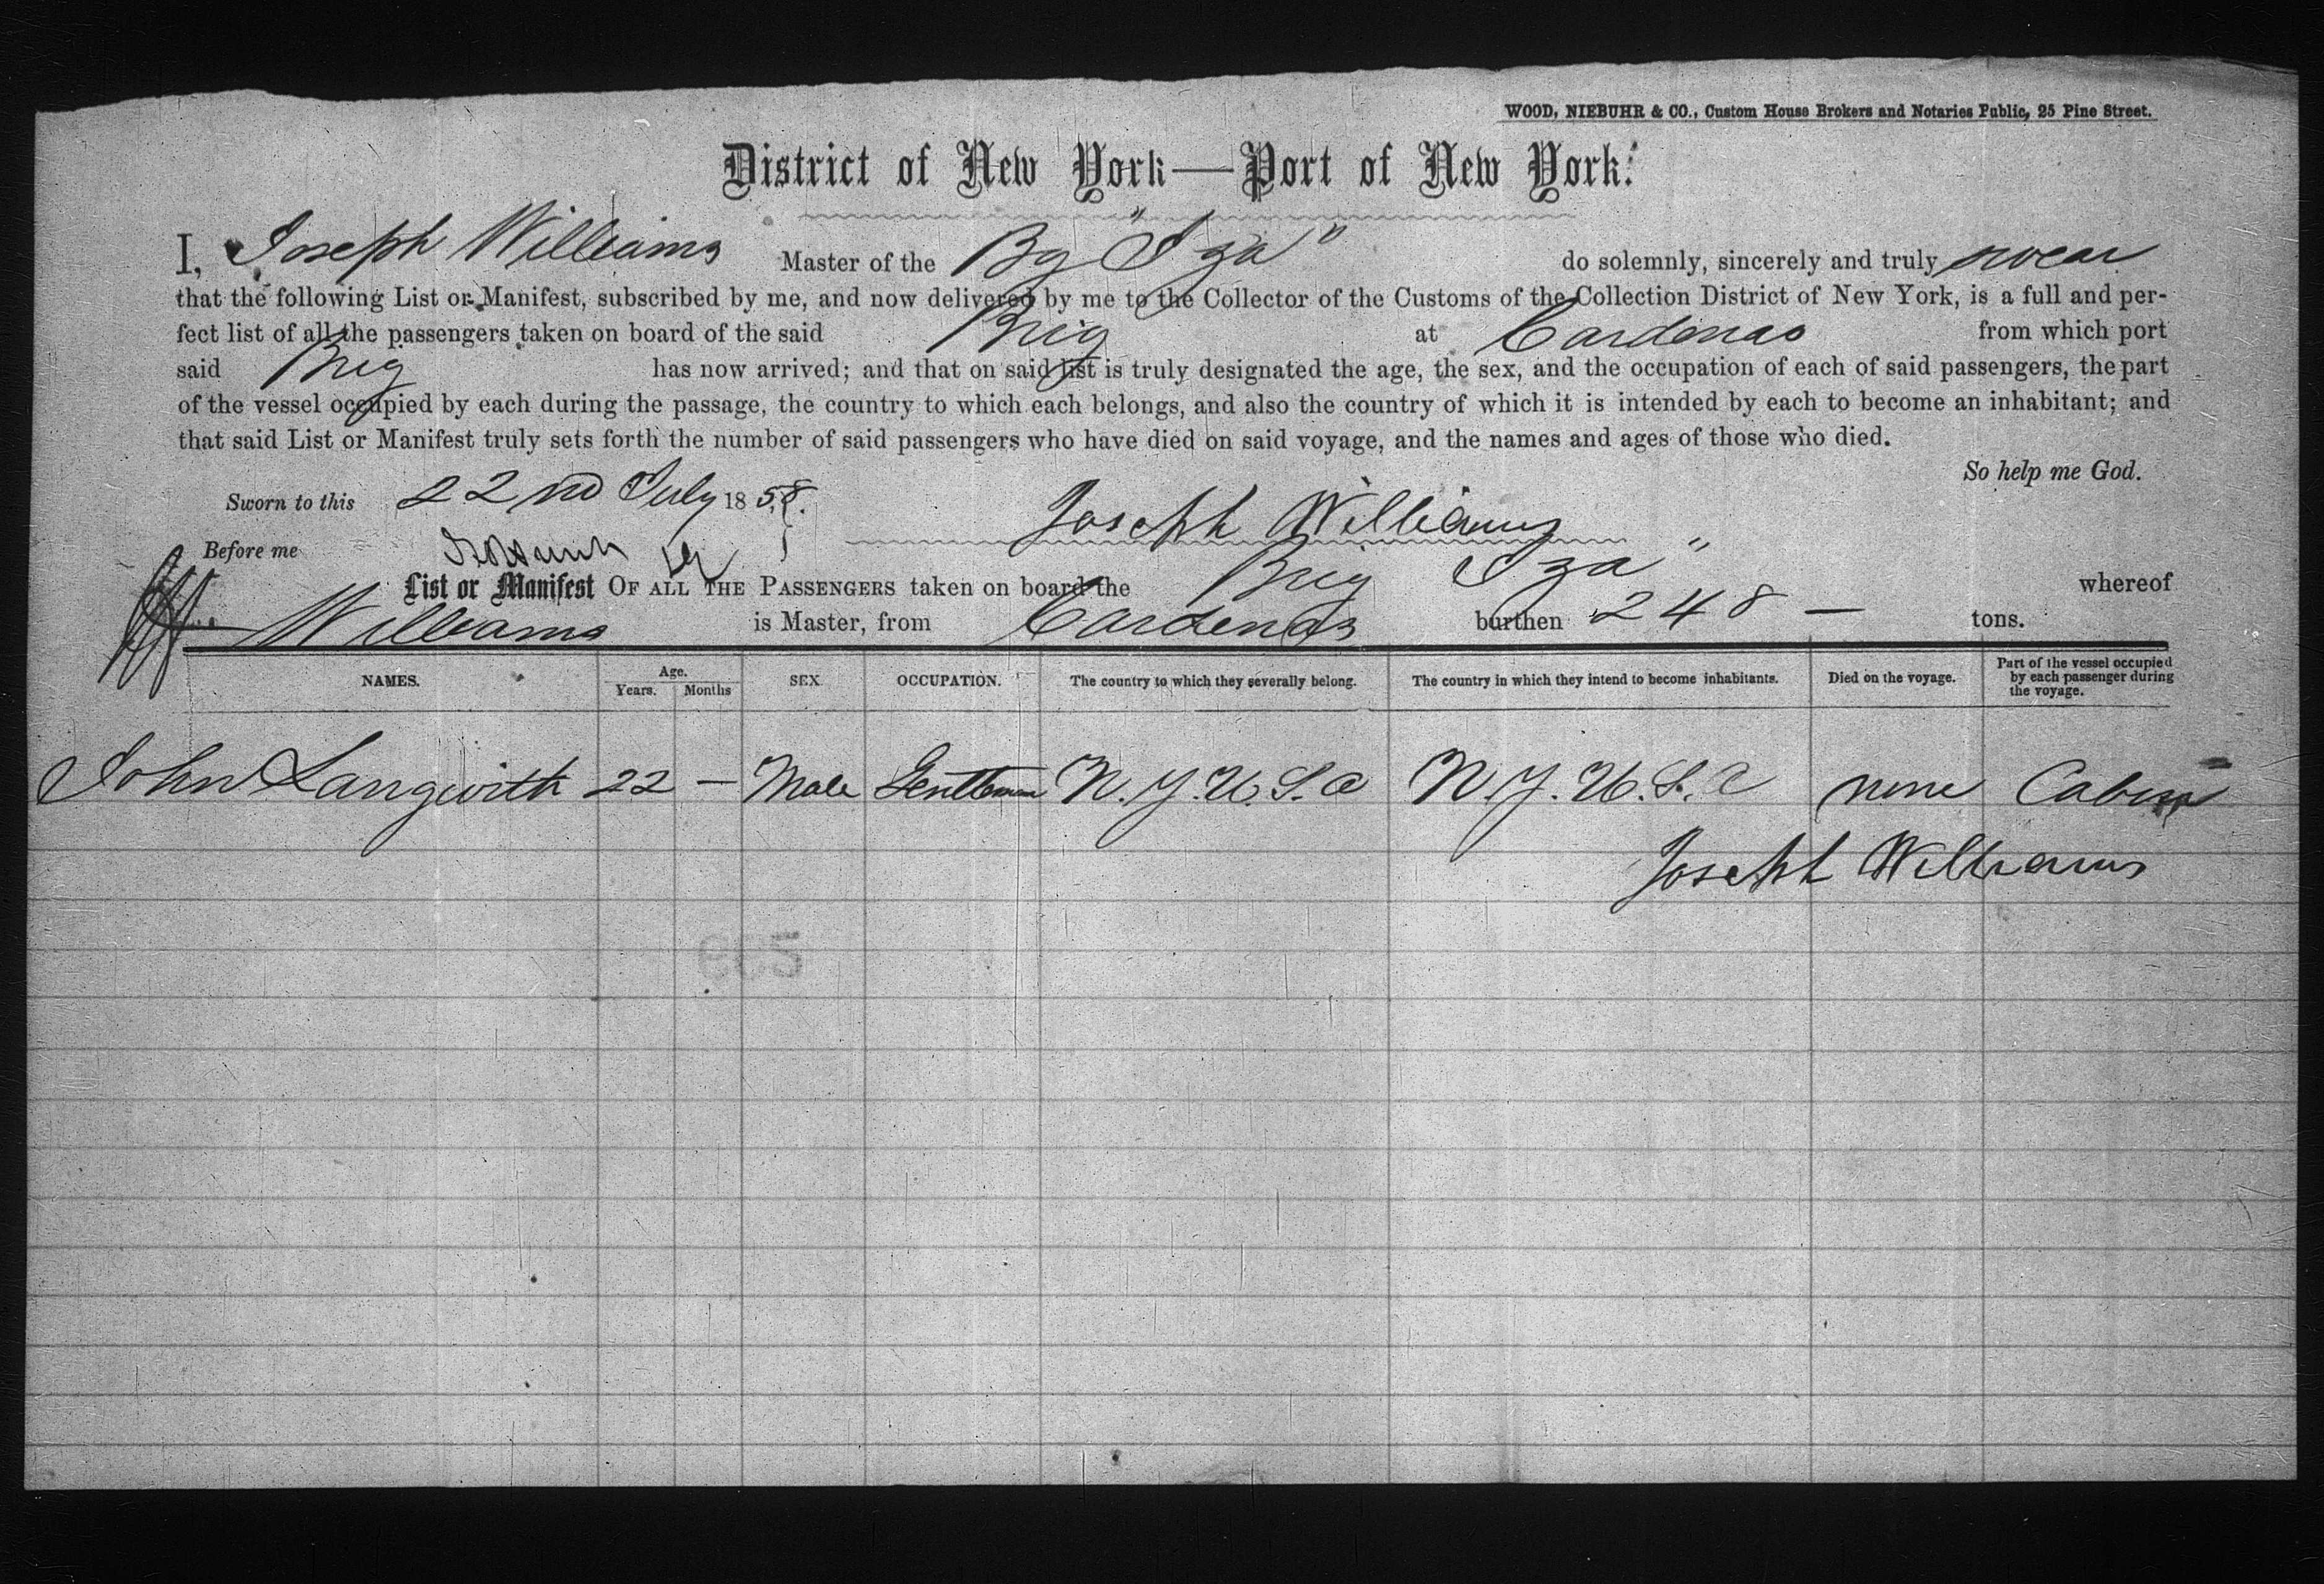 WOOD, NIEBUHR & CO., Custom House Brokers and Notaries Public, 25 Pine Street.
District of New York—Port of New York.
I, Joseph Williams Master of the Bg "Iza" do solemnly, sincerely and truly swear
that the following List or Manifest, subscribed by me, and now delivered by me to the Collector of the Customs of the Collection District of New York, is a full and per-
fect list of all the passengers taken on board of the said Brig at Cardenas from which port
said Brig has now arrived; and that on said list is truly designated the age, the sex, and the occupation of each of said passengers, the part
of the vessel occupied by each during the passage, the country to which each belongs, and also the country of which it is intended by each to become an inhabitant; and
that said List or Manifest truly sets forth the number of said passengers who have died on said voyage, and the names and ages of those who died.
So help me God.
Sworn to this 22nd July 1858.
Joseph Williams
Before me
List or Manifest OF ALL THE PASSENGERS taken on board the Brig Iza" whereof
Williams is Master, from Cardenas burthen 248 — tons.
NAMES. Age. Years. Months SEX. OCCUPATION. The country to which they severally belong. The country in which they intend to become inhabitants. Died on the voyage. Part of the vessel occupied by each passenger during the voyage.
John Langwith 22 — Male Gentleman N.Y. U.S.a N.Y. U.S.a none Cabin
Joseph Williams